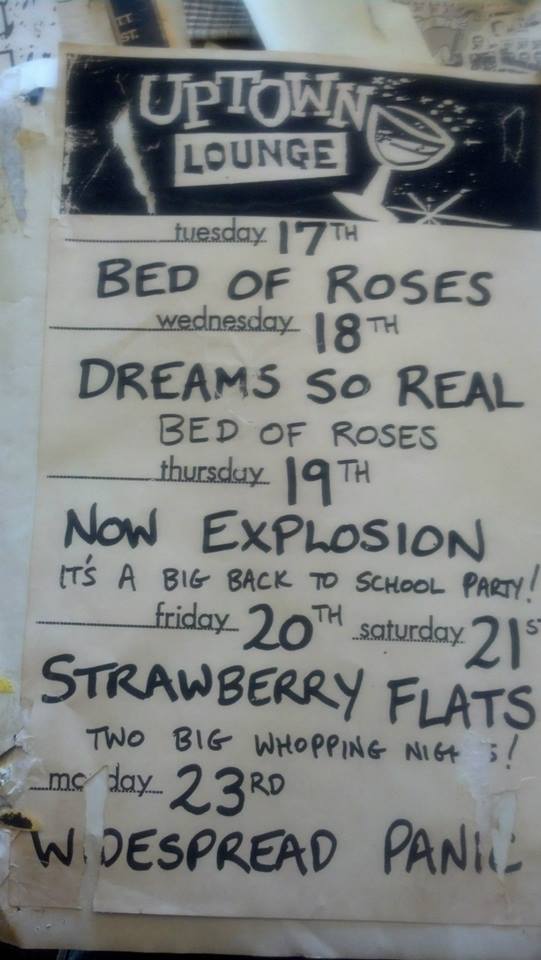 UPTOWN
LOUNGE
tuesday 17TH
BED OF ROSES
wednesday 18TH
DREAMS SO REAL
BED OF ROSES
thursday 19TH
NOW EXPLOSION
IT'S A BIG BACK TO SCHOOL PARTY!
friday 20TH saturday 21ST
STRAWBERRY FLATS
TWO BIG WHOPPING NIGHTS!
monday 23RD
WIDESPREAD PANIC